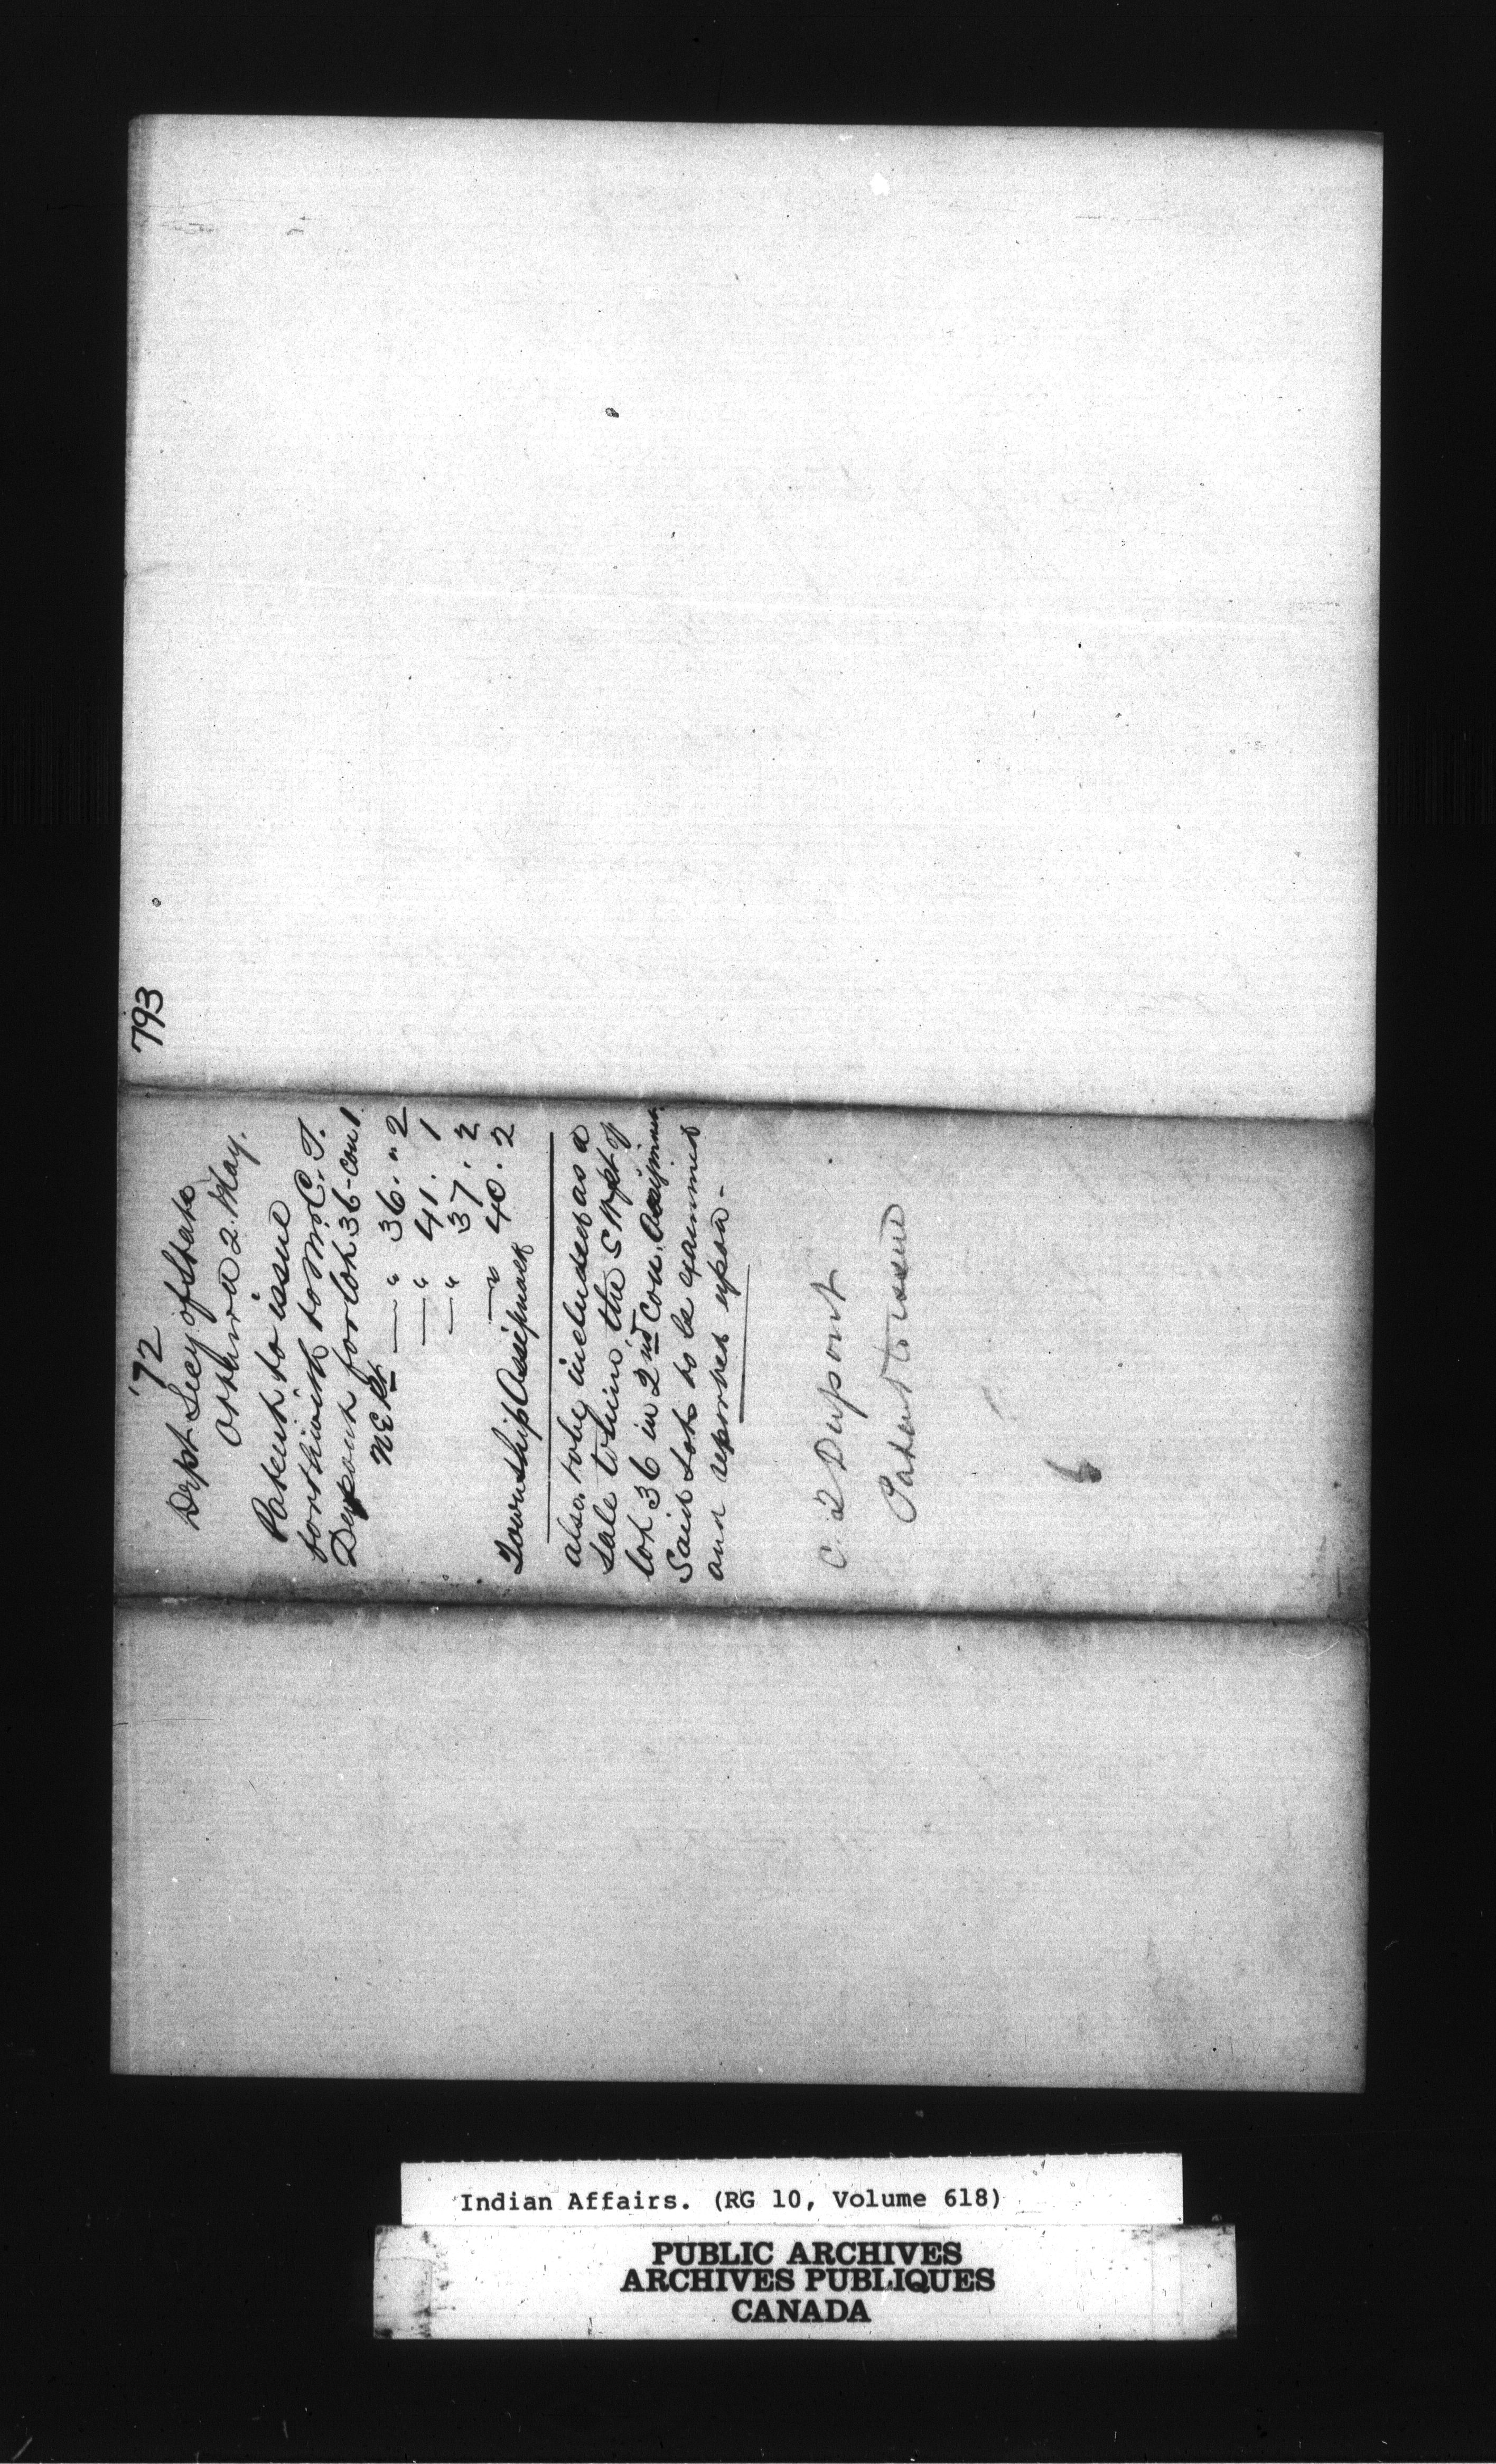 793
'72
Dept. Secy. of State
Ottawa 2. May.
Patent to issue
forthwith to Mr. C. T.
Dupont for lot 36 - Con 1.
NE pt — " 36. " 2
— " 41. 1
— " 37. 2
— " 40. 2
Township Assiginack
also. to be included as a
sale to him, the S W pt. of
lot 36 in 2nd Con. Assiginack
Said lot to be examined
and reported upon -
Dupont
Patent to issue
Indian Affairs. (RG 10, Volume 618)
PUBLIC ARCHIVES
ARCHIVES PUBLIQUES
CANADA